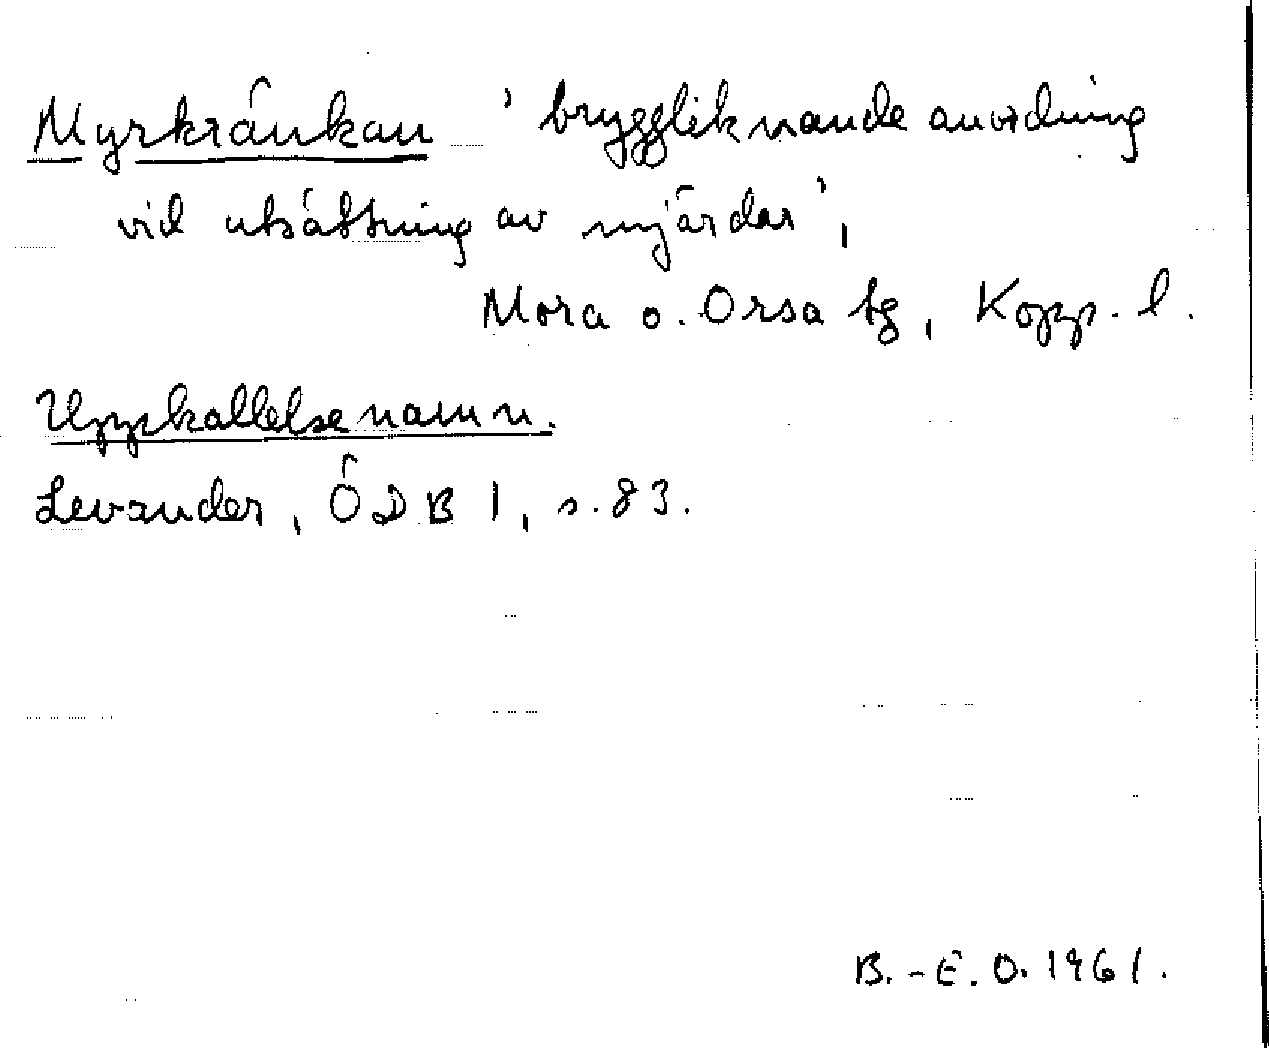 Myrkränkan 'bryggliknande anordning
vid utsättning av mjärdar',
Mora o. Orsa tg, Kopp. l.
Uppkallelsenamn.
Levander, ÖDB 1, s. 83.
B.-E. O. 1961.